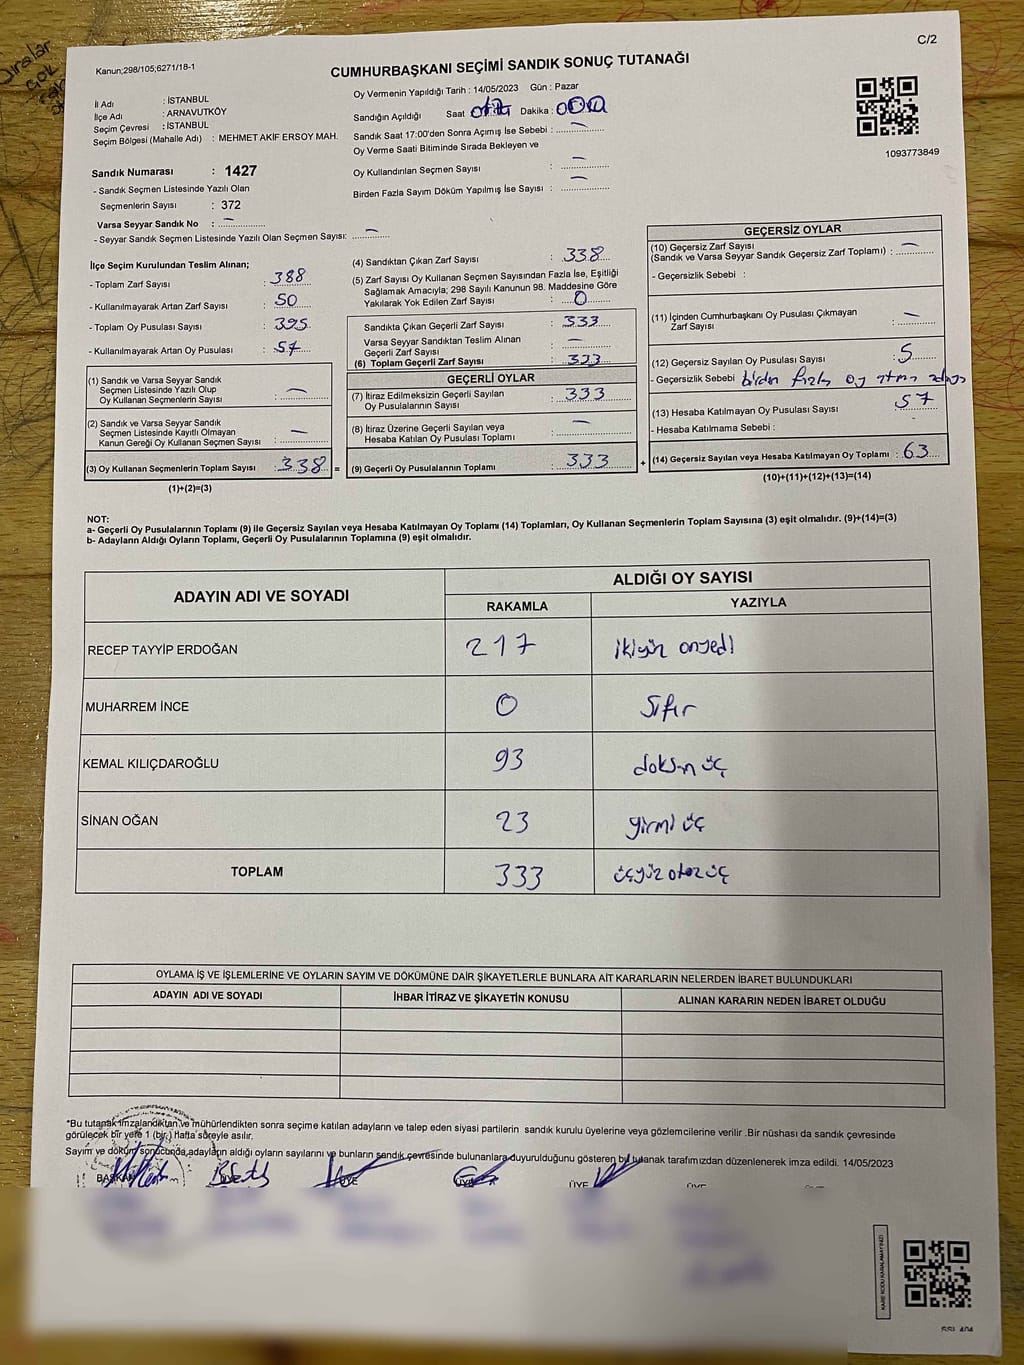 C/2
Kanun;298/105;6271/18-1
CUMHURBAŞKANI SEÇİMİ SANDIK SONUÇ TUTANAĞI
İl Adı : İSTANBUL
İlçe Adı : ARNAVUTKÖY
Seçim Çevresi : İSTANBUL
Seçim Bölgesi (Mahalle Adı) : MEHMET AKİF ERSOY MAH.
Sandık Numarası : 1427
- Sandık Seçmen Listesinde Yazılı Olan
Seçmenlerin Sayısı : 372
Varsa Seyyar Sandık No : —
- Seyyar Sandık Seçmen Listesinde Yazılı Olan Seçmen Sayısı: —
Oy Vermenin Yapıldığı Tarih : 14/05/2023 Gün : Pazar
Sandığın Açıldığı Saat Dakika :
Sandık Saat 17:00'den Sonra Açımış İse Sebebi : —
Oy Verme Saati Bitiminde Sırada Bekleyen ve
Oy Kullandırılan Seçmen Sayısı : —
Birden Fazla Sayım Döküm Yapılmış İse Sayısı : —
1093773849
İlçe Seçim Kurulundan Teslim Alınan;
- Toplam Zarf Sayısı : 388
- Kullanılmayarak Artan Zarf Sayısı : 50
- Toplam Oy Pusulası Sayısı : 395
- Kullanılmayarak Artan Oy Pusulası : 57
(1) Sandık ve Varsa Seyyar Sandık
Seçmen Listesinde Yazılı Olup
Oy Kullanan Seçmenlerin Sayısı : —
(2) Sandık ve Varsa Seyyar Sandık
Seçmen Listesinde Kayıtlı Olmayan
Kanun Gereği Oy Kullanan Seçmen Sayısı : —
(3) Oy Kullanan Seçmenlerin Toplam Sayısı : 338 =
(1)+(2)=(3)
(4) Sandıktan Çıkan Zarf Sayısı : 338
(5) Zarf Sayısı Oy Kullanan Seçmen Sayısından Fazla İse, Eşitliği
Sağlamak Amacıyla; 298 Sayılı Kanunun 98. Maddesine Göre
Yakılarak Yok Edilen Zarf Sayısı : 0
Sandıkta Çıkan Geçerli Zarf Sayısı : 333
Varsa Seyyar Sandıktan Teslim Alınan
Geçerli Zarf Sayısı : —
(6) Toplam Geçerli Zarf Sayısı : 333
GEÇERLİ OYLAR
(7) İtiraz Edilmeksizin Geçerli Sayılan
Oy Pusulalarının Sayısı : 333
(8) İtiraz Üzerine Geçerli Sayılan veya
Hesaba Katılan Oy Pusulası Toplamı : —
(9) Geçerli Oy Pusulalarının Toplamı : 333 +
GEÇERSİZ OYLAR
(10) Geçersiz Zarf Sayısı
(Sandık ve Varsa Seyyar Sandık Geçersiz Zarf Toplamı) : —
- Geçersizlik Sebebi :
(11) İçinden Cumhurbaşkanı Oy Pusulası Çıkmayan
Zarf Sayısı : —
(12) Geçersiz Sayılan Oy Pusulası Sayısı : 5
- Geçersizlik Sebebi birden fazla oy
(13) Hesaba Katılmayan Oy Pusulası Sayısı : 57
- Hesaba Katılmama Sebebi :
(14) Geçersiz Sayılan veya Hesaba Katılmayan Oy Toplamı : 63
(10)+(11)+(12)+(13)=(14)
NOT:
a- Geçerli Oy Pusulalarının Toplamı (9) ile Geçersiz Sayılan veya Hesaba Katılmayan Oy Toplamı (14) Toplamları, Oy Kullanan Seçmenlerin Toplam Sayısına (3) eşit olmalıdır. (9)+(14)=(3)
b- Adayların Aldığı Oyların Toplamı, Geçerli Oy Pusulalarının Toplamına (9) eşit olmalıdır.
ADAYIN ADI VE SOYADI ALDIĞI OY SAYISI
RAKAMLA YAZIYLA
RECEP TAYYİP ERDOĞAN 217 ikiyüz onyedi
MUHARREM İNCE 0 Sıfır
KEMAL KILIÇDAROĞLU 93 doksan üç
SİNAN OĞAN 23 yirmi üç
TOPLAM 333 üçyüz otuz üç
OYLAMA İŞ VE İŞLEMLERİNE VE OYLARIN SAYIM VE DÖKÜMÜNE DAİR ŞİKAYETLERLE BUNLARA AİT KARARLARIN NELERDEN İBARET BULUNDUKLARI
ADAYIN ADI VE SOYADI İHBAR İTİRAZ VE ŞİKAYETİN KONUSU ALINAN KARARIN NEDEN İBARET OLDUĞU
*Bu tutanak imzalandıktan ve mühürlendikten sonra seçime katılan adayların ve talep eden siyasi partilerin sandık kurulu üyelerine veya gözlemcilerine verilir .Bir nüshası da sandık çevresinde
görülecek bir yere 1 (bir ) Hafta süreyle asılır.
Sayım ve döküm sonucunda,adayların aldığı oyların sayılarını ve bunların sandık çevresinde bulunanlara duyurulduğunu gösteren bu tutanak tarafımızdan düzenlenerek imza edildi. 14/05/2023
BAŞKAN ÜYE ÜYE ÜYE ÜYE ÜYE
KARE KODU KARALAMAYINIZ!